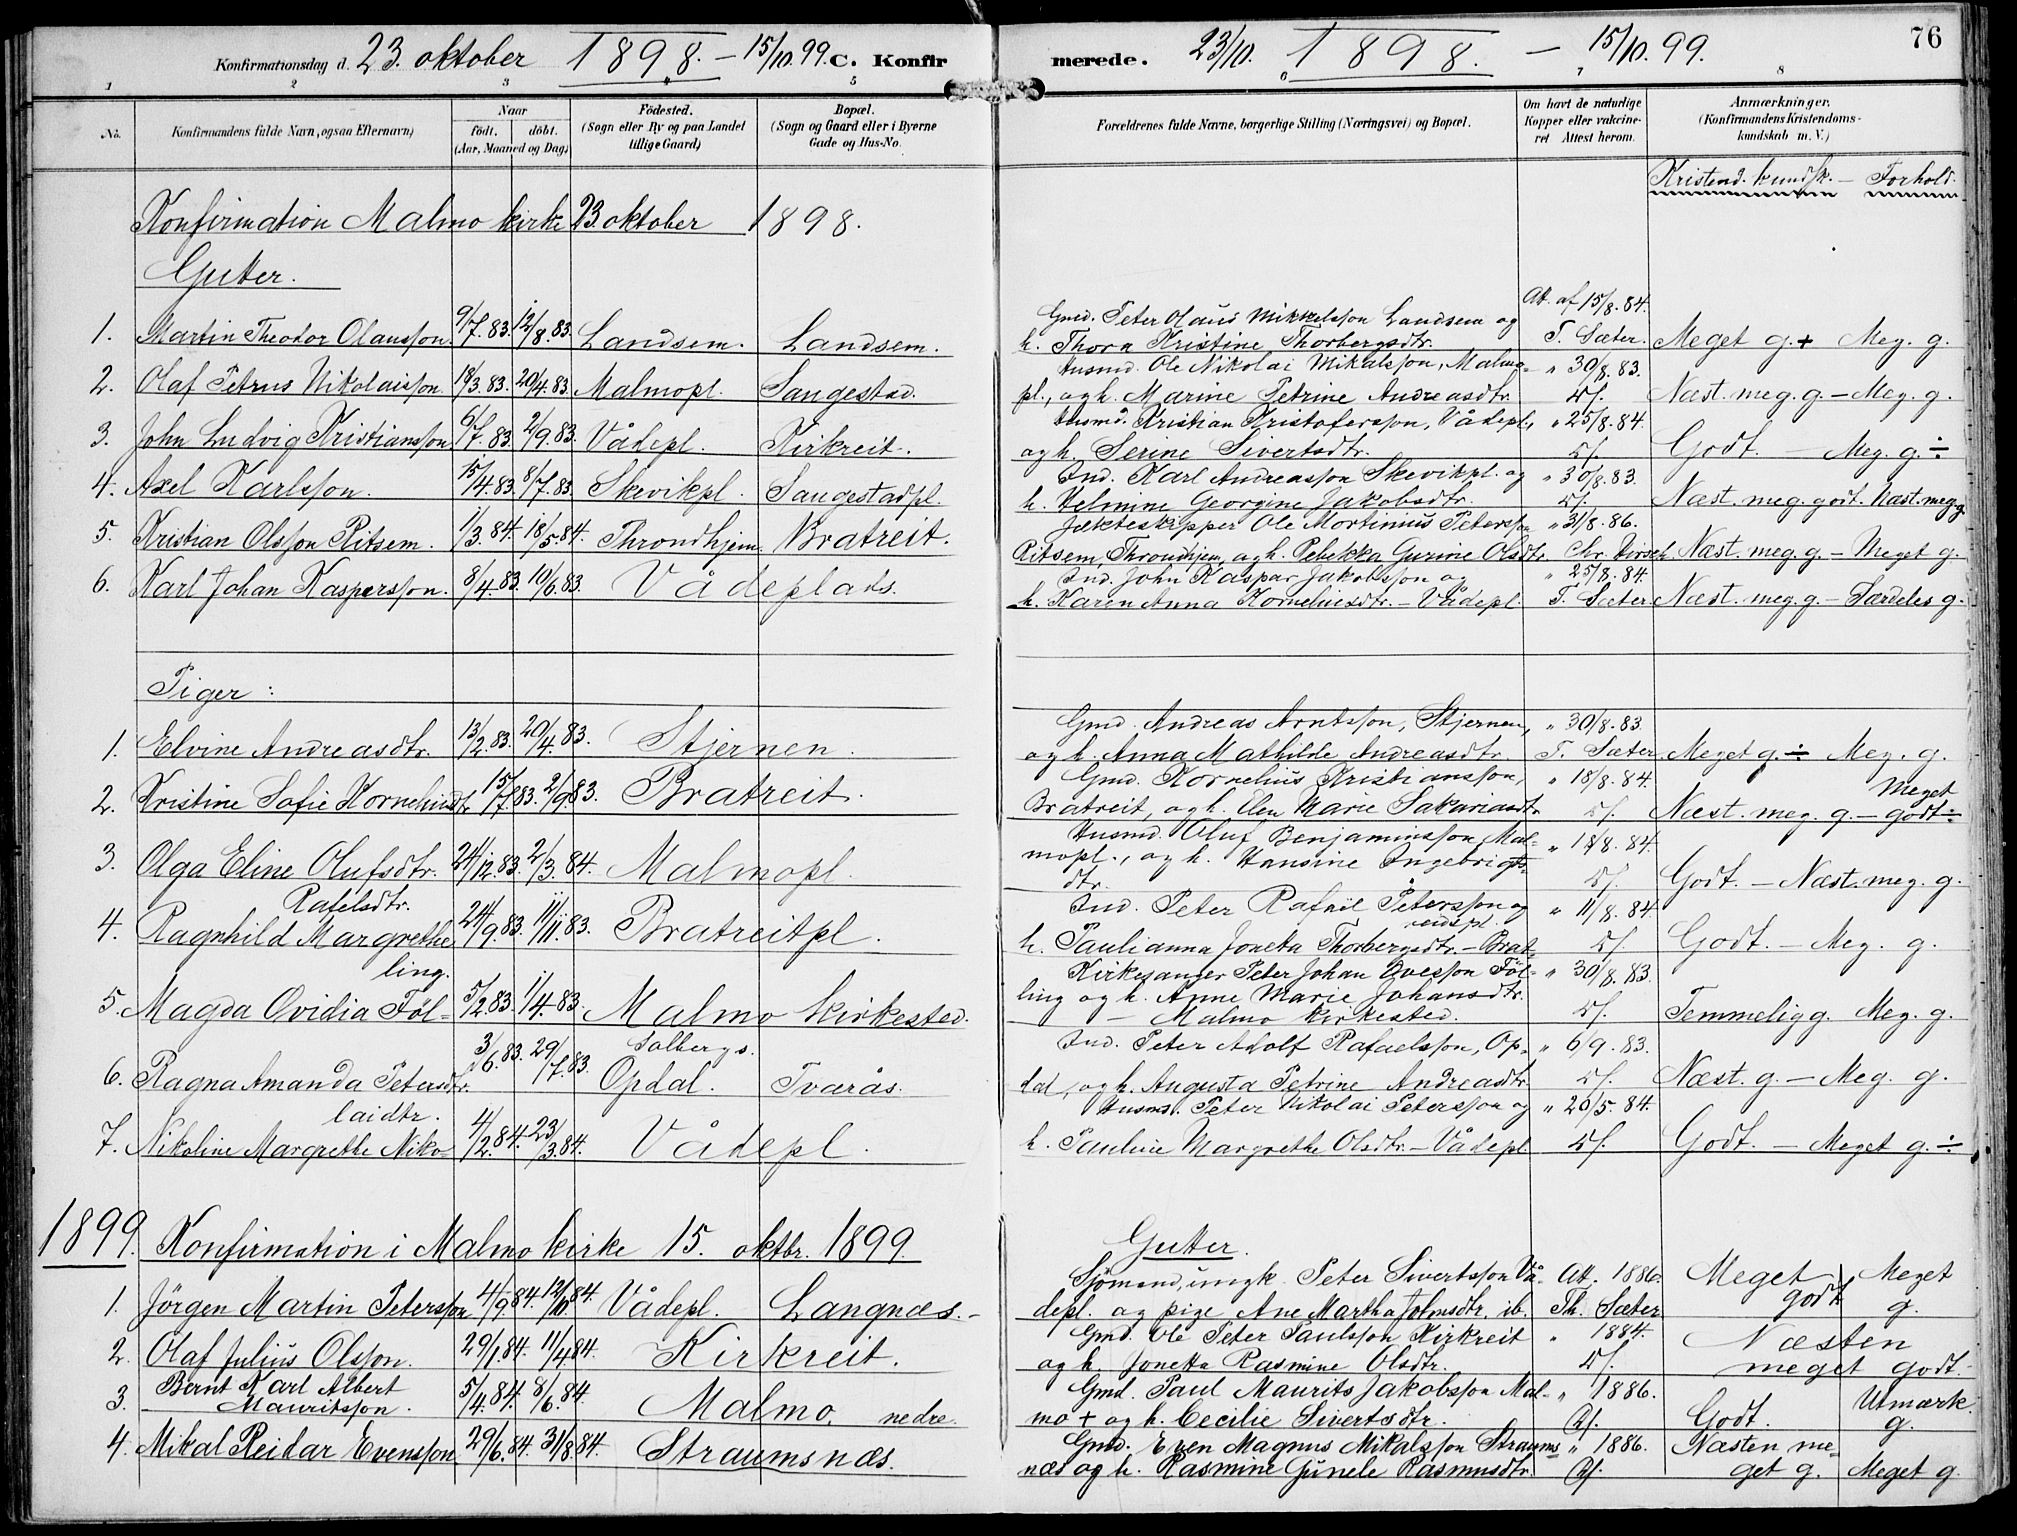 Konfirmationsdag d. 23. oktober 1898. – 15/10.99. C. Konfir
1 2 3 4 5
No.
Konfirmandens fulde Navn, ogsaa Efternavn)
Naar
födt. döbt.
(Aar, Maaned og Dag)
Födested.
(Sogn eller By og paa Landet
tillige Gaard)
Bopæl.
(Sogn og Gaard eller i Byerne
Gade og Hus-No.
Konfirmation Malmo kirke 23 oktober 1898.
Gutter.
1. Martin Theodor Olausson 9/7.83. 12/8.83. Landsem. Landsem.
2. Olaf Petrus Nikolaisson. 18/3.83. 20/4.83. Malmopl. Sangestad.
3. John Ludvig Kristiansson 6/7.83. 2/9.83. Vådepl. Kirkreit.
4. Axel Karlsson. 15/4.83. 8/7.83. Skevikpl. Sangestadpl.
5. Kristian Olsson Ritsem. 1/3.84. 18/5.84. Throndhjem. Bratreit.
6. Karl Johan Kaspersson. 8/4.83. 10/6.83. Vådeplads.
Piger:
1. Elvine Andreasdtr. 13/2.83. 20/4.83. Stjernen.
2. Kristine Sofie Korneliusdtr. 15/7.83. 2/9.83. Bratreit.
3. Olga Eline Olufsdtr. 24/12.83. 2/3.84. Malmopl.
Rafelsdtr.
4. Ragnhild Margrethe 24/9.83. 11/11.83. Bratreitpl.
ling.
5. Magda Ovidia Föl- 5/2.83. 1/4.83. Malmo kirkested.
Solbergs.
6. Ragna Amanda Petersdtr. 3/6.83. 29/7.83. Opdal. Tvarås.
laidtr.
7. Nikoline Margrethe Niko- 4/2.84. 23/3.84. Vådepl.
1899. Konfirmation i Malmo kirke 15. oktbr. 1899.
1. Jörgen Martin Petersson 4/9.84. 12/10.84. Vådepl. Langnæs.
2. Olaf Julius Olsson. 29/1.84. 11/4.84. Kirkreit.
Bernt Karl Albert
3. Mauritsson. 5/4.84. 8/6.84. Malmo, nedre.
4. Mikal Reidar Evensson 29/6.84. 31/8.84. Straumsnæs.
merede. 23/10. 1898. – 15/10.99. 76
6 7 8
Forældrenes fulde Navne, borgerlige Stilling (Næringsvei) og Bopæl.
Om havt de naturlige
Kopper eller vakcine-
ret Attest herom.
Anmærkninger.
(Konfirmandens Kristendoms-
kundskab m. V.)
Kristend. kundsk. – Forhold.
Gmd. Peter Olaus Mikkelsson Landsem og Att. af 15/8.84.
h. Thora Kristine Thorbergsdtr. T. Sæter. Meget g. + Meg. g.
Husmd. Ole Nikolai Mikalsson, Malmo- " 30/8.83.
pl., og h. Marine Petrine Andreasdtr. Næst. meg. g. – Meg. g.
Husmd. Kristian Kristofersson, Vådepl., " 25/8.84.
og h. Serine Sivertsdtr. Godt. – Meg. g. ÷
Ind. Karl Andreasson Skevikpl. og " 30/8.83.
h. Helmine Georgine Jakobsdtr. Næst. meg. godt. Næst. meg. g.
Jækteskipper Ole Mortinius Petersson " 31/8.86.
Ritsem, Throndhjem, og h. Rebekka Gurine Olsdtr. Chr. Næst. meg. g. – Meget g.
Ind. John Kaspar Jakobsson og " 25/8.84.
h. Karen Anna Korneliusdtr. – Vådepl. T. Sæter Næst. meg. g. – Særdeles g.
Gmd. Andreas Arntsson, Stjernen, " 30/8.83.
og h. Anna Mathilde Andreasdtr. T. Sæter. Meget g. ÷ Meg. g.
Gmd. Kornelius Kristiansson, " 18/8.84. Meget
Bratreit, og h. Elen Marie Sakariasdtr. Næst. meg. g. – godt ÷
Husmd. Oluf Benjaminsson, Mal- " 18/8.84.
mopl., og h. Hansine Ingebrigts-
dtr. Godt. – Næst. meg. g.
Ind. Peter Rafael Petersson og " 11/8.84.
reitspl.
h. Paulianna Joneta Thorbergsdtr. – Brat- Godt. – Meg. g.
Kirkesanger Peter Johan Ovesson Föl- " 30/8.83.
ling og h. Anne Marie Johansdtr.
– Malmo kirkested. Temmelig g. Meg. g.
Ind. Peter Adolf Rafaelsson, Op- " 6/9.83.
dal, og h. Augusta Petrine Andreasdtr. Næst. g. – Meg. g.
Husmd. Peter Nikolai Petersson og " 20/5.84.
h. Pauline Margrethe Olsdtr. – Vådepl. Godt. – Meget g. ÷
Gutter.
Sjömand, ungk. Peter Sivertsson Vå- Att. 1886. Meget Meget
depl. og pige Ane Martha Johnsdtr. ib. Th. Sæter godt g.
Gmd. Ole Peter Paulsson Kirkreit " 1884. Næsten
og h. Jonetta Rasmine Olsdtr. meget godt.
Gmd. Paul Maurits Jakobsson Mal- " 1886. Utmærk.
mo + og h. Cecilie Sivertsdtr. Godt. g.
Gmd. Even Magnus Mikalsson Straums " 1886. Næsten me-
næs og h. Rasmine Gunele Rasmusdtr. get g. Meget g.